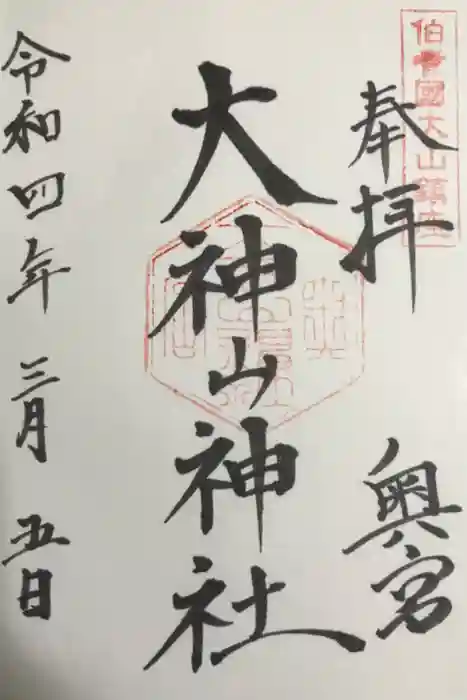 伯耆國大山鎮座
奉拝 奥宮
大神山神社
令和四年三月五日